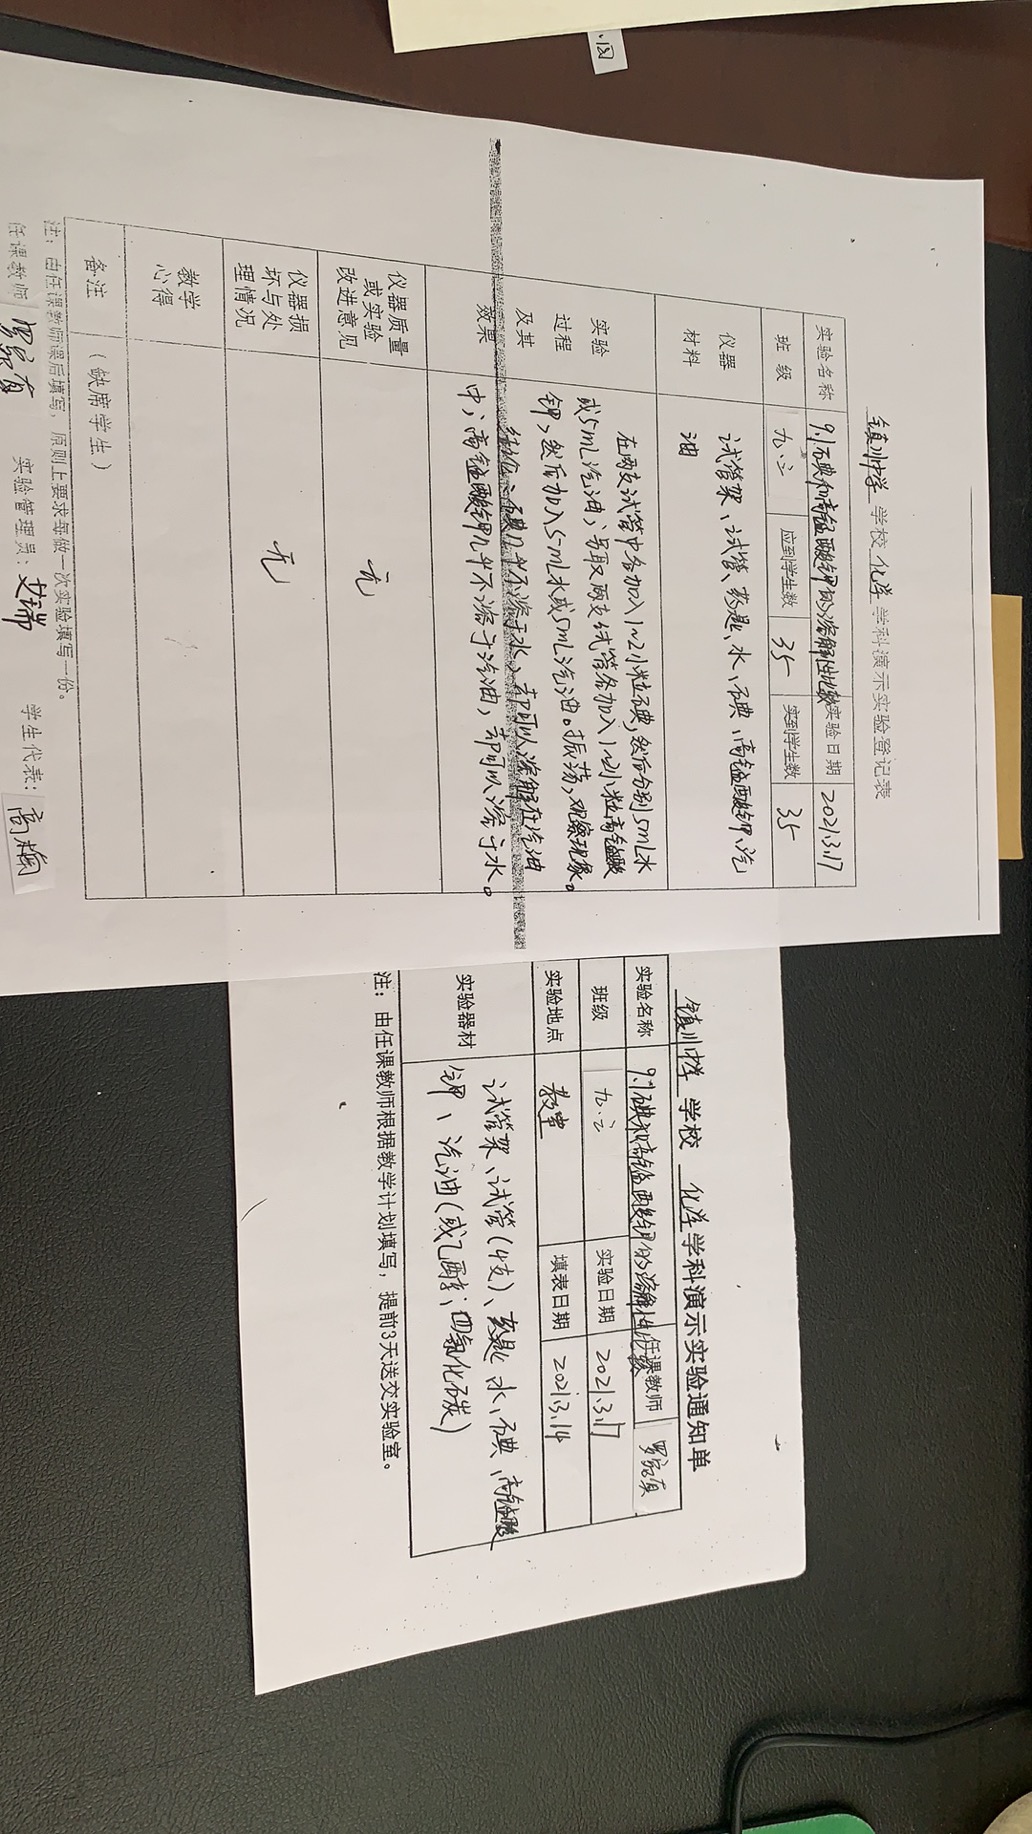 镇川中学 学校 化学 学科演示实验登记表
实验名称 9.1碘和高锰酸钾的溶解性比较 实验日期 2021.3.17
班级 九.二 应到学生数 35 实到学生数 35
仪器材料 试管架、试管、药匙、水、碘、高锰酸钾、汽
油
实验过程及其效果
在两支试管中各加入1~2小粒碘,然后分别5mL水
或5mL汽油;另取两支试管各加入1~2小粒高锰酸
钾,然后加入5mL水或5mL汽油。振荡,观察现象。
结论:碘几乎不溶于水,却可以溶解在汽油
中;高锰酸钾几乎不溶于汽油,却可以溶于水。
仪器质量或实验改进意见 无
仪器损坏与处理情况 无
教学心得
备注 (缺席学生)
注:由任课教师课后填写,原则上要求每做一次实验填写一份。
任课教师 实验管理员: 艾瑞 学生代表: 高楠
镇川中学 学校 化学 学科演示实验通知单
实验名称 9.1碘和高锰酸钾的溶解性比较 任课教师
班级 九.二 实验日期 2021.3.17
实验地点 教室 填表日期 2021.3.14
实验器材 试管架、试管(4支)、药匙、水、碘、高锰酸
钾、汽油(或乙醇;四氯化碳)
注:由任课教师根据教学计划填写,提前3天送交实验室。